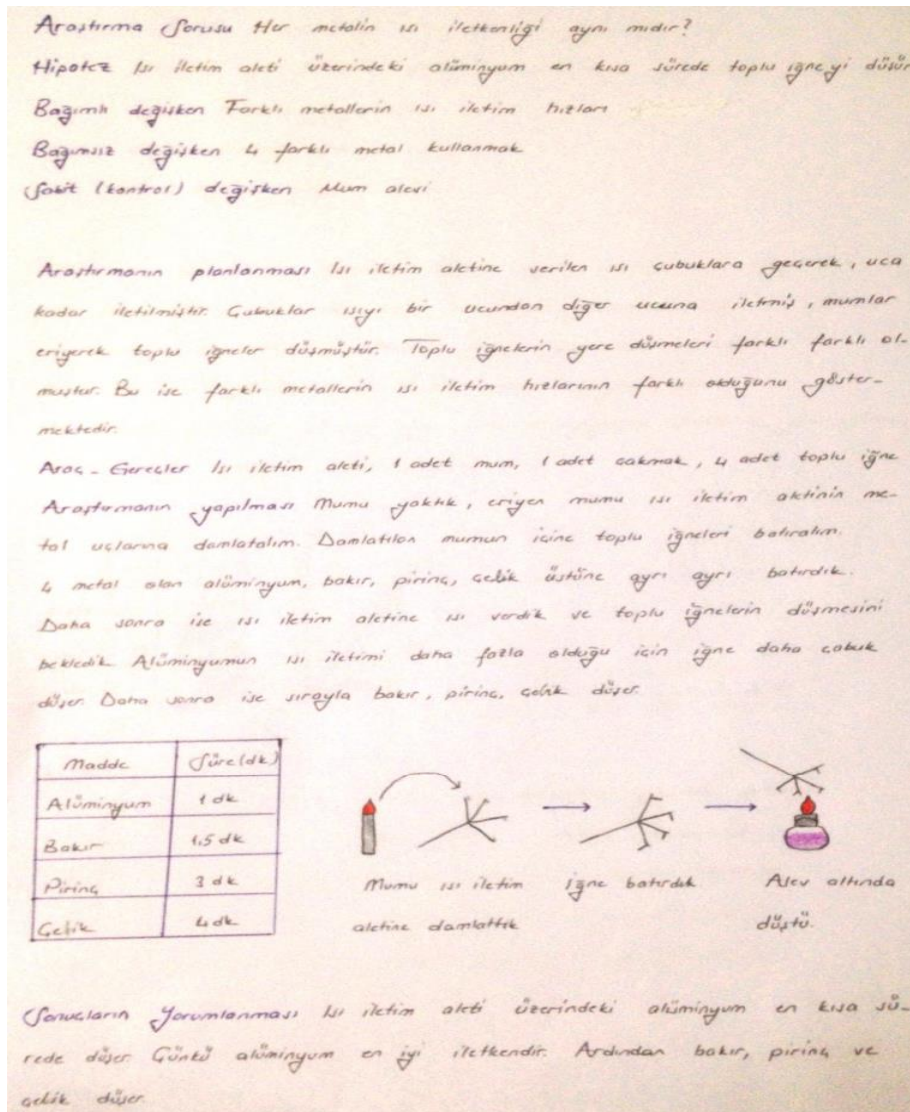 Araştırma Sorusu Her metalin ısı iletkenliği aynı mıdır?
Hipotez Isı iletim aleti üzerindeki alüminyum en kısa sürede toplu iğneyi düşür
Bağımlı değişken Farklı metallerin ısı iletim hızları
Bağımsız değişken 4 farklı metal kullanmak
Sabit (kontrol) değişken Mum alevi
Araştırmanın planlanması Isı iletim aletine verilen ısı çubuklara geçerek, uca
kadar iletilmiştir. Çubuklar ısıyı bir ucundan diğer ucuna iletmiş, mumlar
eriyerek toplu iğneler düşmüştür. Toplu iğnelerin yere düşmeleri farklı farklı ol-
muştur. Bu ise farklı metallerin ısı iletim hızlarının farklı olduğunu göster-
mektedir.
Araç-Gereçler Isı iletim aleti, 1 adet mum, 1 adet çakmak, 4 adet toplu iğne
Araştırmanın yapılması Mumu yaktık, eriyen mumu ısı iletim aletinin me-
tal uçlarına damlatalım. Damlatılan mumun içine toplu iğneleri batıralım.
4 metal olan alüminyum, bakır, pirinç, çelik üstüne ayrı ayrı batırdık.
Daha sonra ise ısı iletim aletine ısı verdik ve toplu iğnelerin düşmesini
bekledik. Alüminyumun ısı iletimi daha fazla olduğu için iğne daha çabuk
düşer. Daha sonra ise sırayla bakır, pirinç, çelik düşer.
Madde Süre(dk)
Alüminyum 1 dk
Bakır 1,5 dk
Pirinç 3 dk
Çelik 4 dk
Mumu ısı iletim
aletine damlattık
İğne batırdık
Alev altında
düştü.
Sonuçların Yorumlanması Isı iletim aleti üzerindeki alüminyum en kısa sü-
rede düşer. Çünkü alüminyum en iyi iletkendir. Ardından bakır, pirinç ve
çelik düşer.